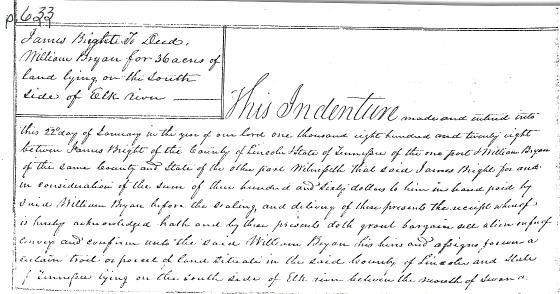 p.633
James Bright To Deed,
William Bryan for 36 acres of
land lying on the South
side of Elk river
This Indenture made and entered into
this 22d day of January in the year of our lord one thousand eight hundred and twenty eight
between James Bright of the County of Lincoln & State of Tennessee of the one part & William Bryan
of the same County and State of the other part Witnesseth that said James Bright for and
in consideration of the sum of three hundred and sixty dollars to him in hand paid by
said William Bryan before the sealing and delivery of these presents the receipt whereof
is hereby acknowledged hath and by these presents doth grant bargain sell alien enfeof
convey and confirm unto the said William Bryan his heirs and assigns forever a
certain tract or parcel of land Situate in the said County of Lincoln and State
of Tennessee lying on the South side of Elk river between the mouth of Swan